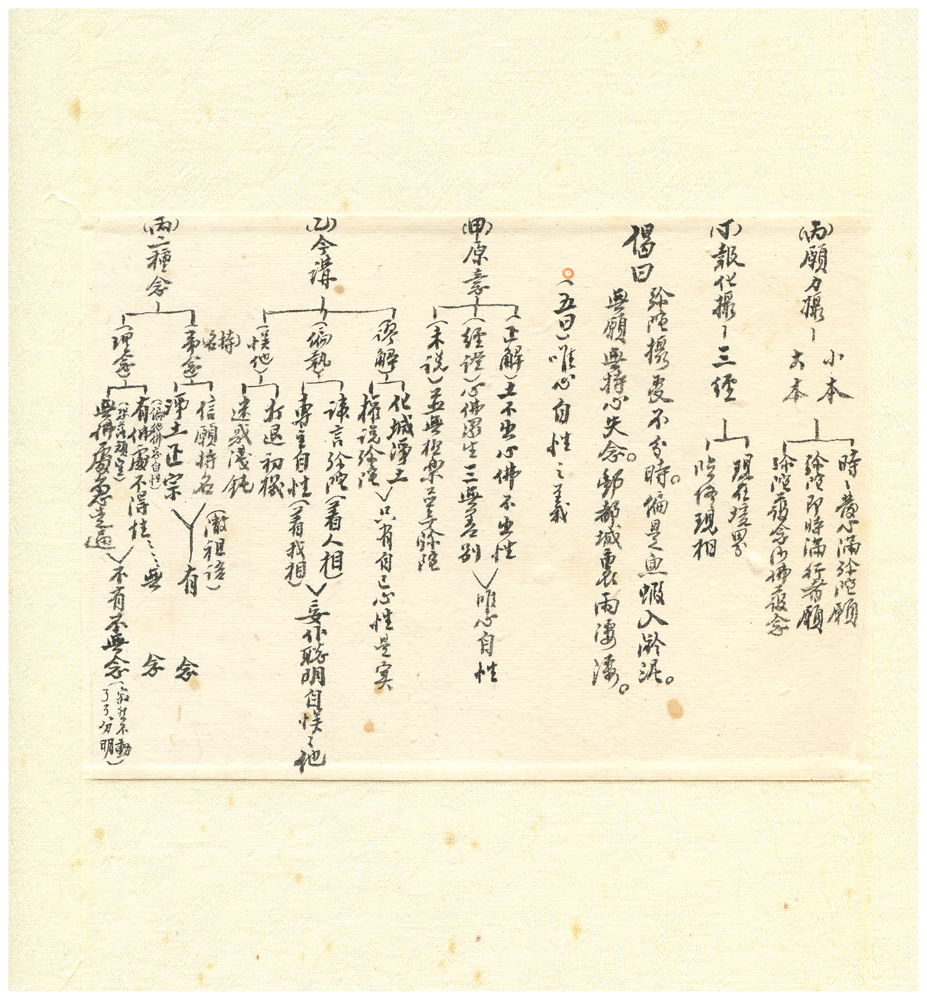 (丙)願力攝
小本
大本
時時發心滿彌陀願
彌陀即時滿行者願
彌陀發念ḿ佛發念
(丁)報化攝
三經
現在境界
臨終現相
偈曰
彌陀攝受不分時。偏是魚蝦入淤泥。
無願無持心失念。酆都城裏雨淒淒。
(五日)唯心自性之義
(甲)原意
(正解)土不出心佛不出性
(經證)心佛眾生三無差別
唯心自性
(未說)並無極樂並無彌陀
(乙)今講
(謬解)
化城淨土
權說彌陀
只有自己心性是實
(偏執)
諱言彌陀(著人相)
專主自性(著我相)
妄作聰明自悞悞他
(悞他)
打退初機
迷惑淺鈍
(丙)二種念
(事念)
(持名)
信願持名
淨土正宗
(徹祖語)
有 念
(理念)
有佛處不得住
無 念
無佛處急走過
不有不無念
了了分明)